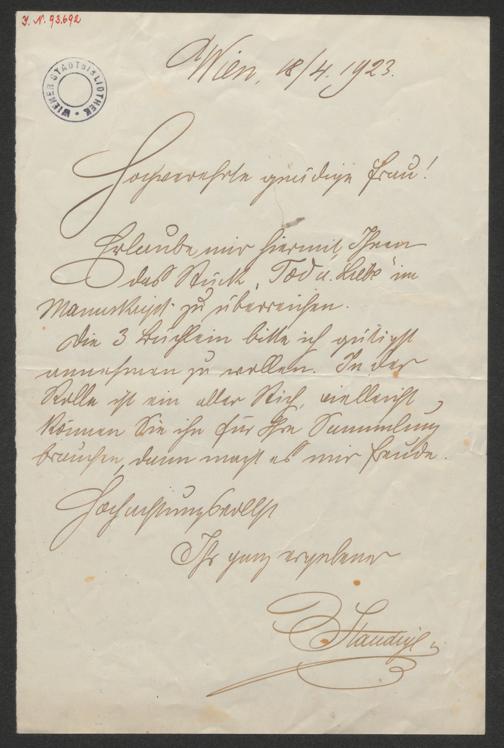 I. N. 93.692
WIENER STADTBIBLIOTHEK
Wien, 18/4. 1923.
Hochverehrte gnädige Frau!
Erlaube mir hiermit, Ihnen
das Stück „Tod u. Liebe“ im
Manuskript zu überreichen.
Die 3 Büchlein bitte ich gütigst
annehmen zu wollen. In der
Rolle ist ein alter Stich, vielleicht
können Sie ihn für Ihre Sammlung
brauchen, dann macht es mir Freude.
Hochachtungsvollst
Ihr ganz ergebener
Staudigl